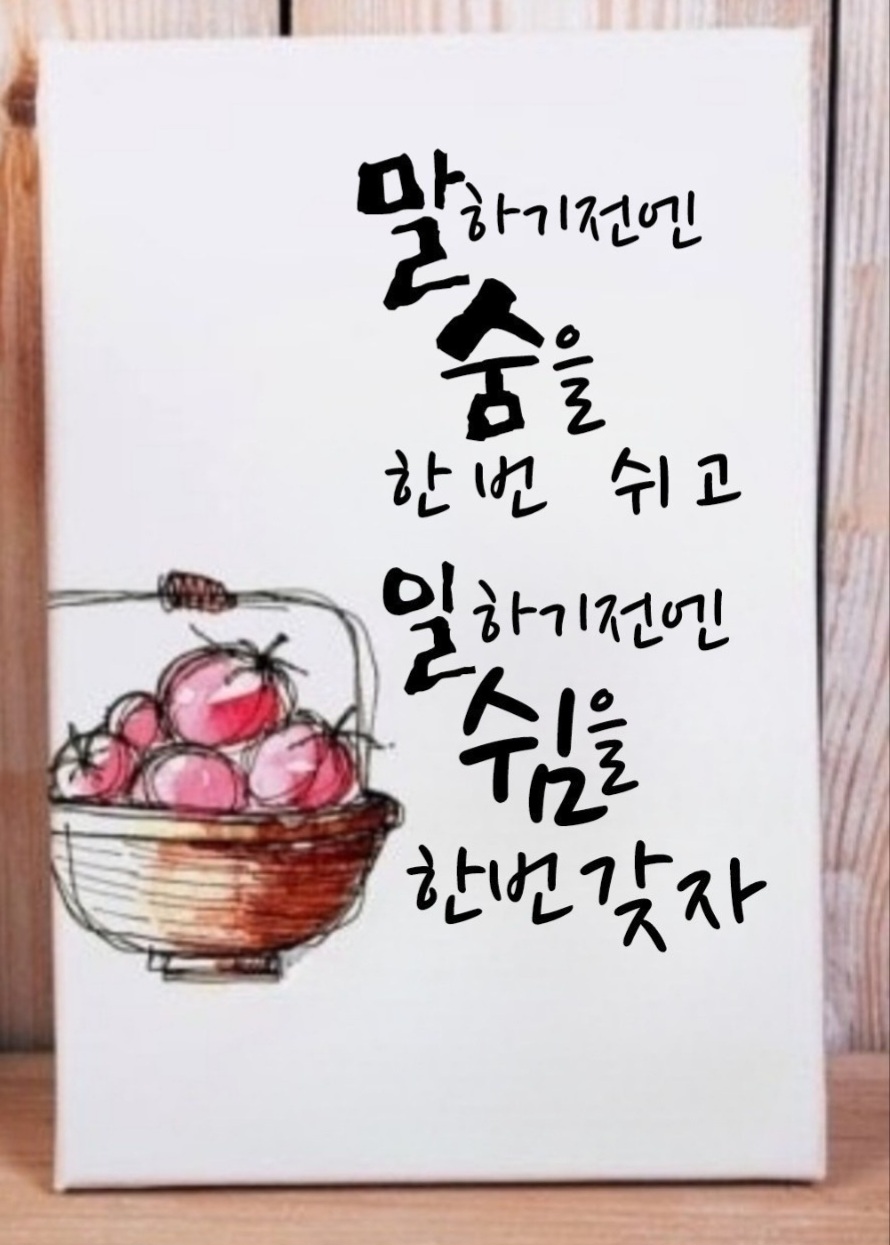 말하기전에
숨을
한번 쉬고
일하기전에
쉼을
한번갖자